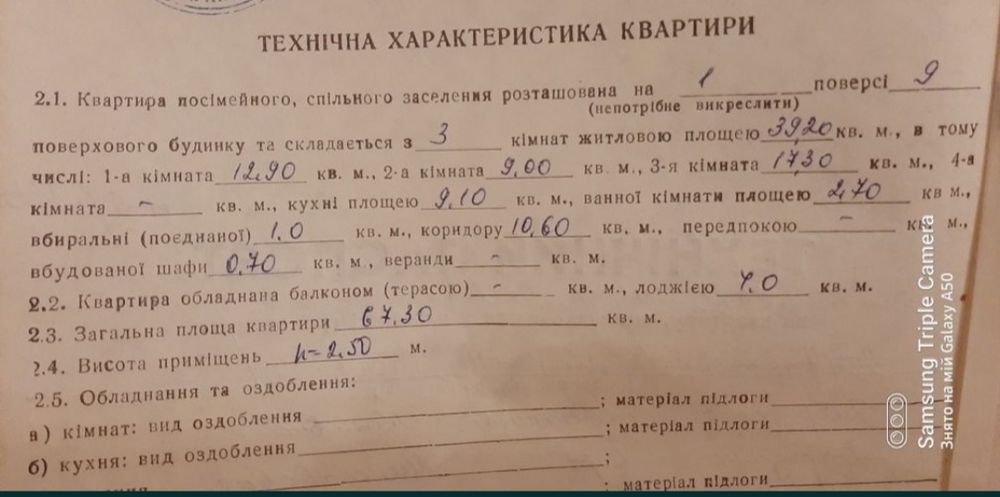 ТЕХНІЧНА ХАРАКТЕРИСТИКА КВАРТИРИ
2.1. Квартира посімейного, спільного заселення розташована на 1 поверсі 9
(непотрібне викреслити)
поверхового будинку та складається з 3 кімнат житловою площею 39,20 кв. м., в тому
числі: 1-а кімната 12,90 кв. м., 2-а кімната 9,00 кв. м., 3-я кімната 17,30 кв. м., 4-а
кімната - кв. м., кухні площею 9,10 кв. м., ванної кімнати площею 2,70 кв м.,
вбиральні (поєднаної) 1,0 кв. м., коридору 10,60 кв. м., передпокою - кв. м.,
вбудованої шафи 0,70 кв. м., веранди - кв. м.
2.2. Квартира обладнана балконом (терасою) - кв. м., лоджією 7,0 кв. м.
2.3. Загальна площа квартири 67,30 кв. м.
2.4. Висота приміщень h=2,50 м.
2.5. Обладнання та оздоблення:
а) кімнат: вид оздоблення ; матеріал підлоги
б) кухня: вид оздоблення ; матеріал підлоги
; матеріал підлоги
Samsung Triple Camera
Знято на мій Galaxy A50